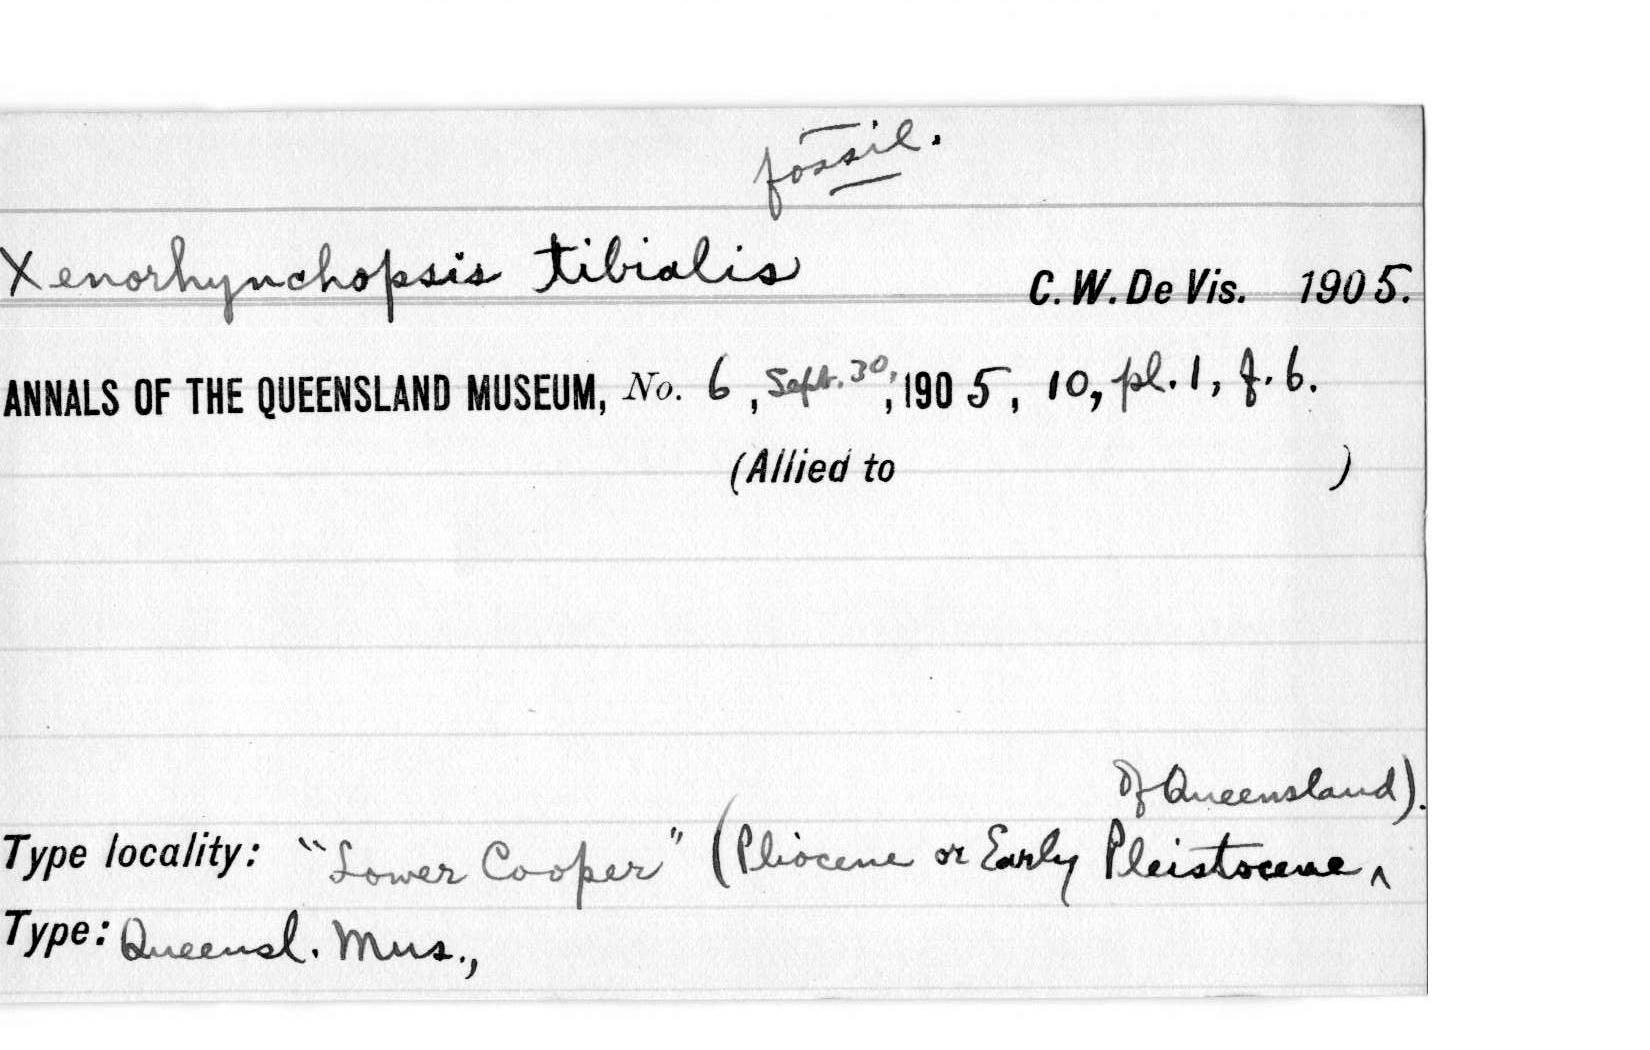 fossil.
Xenorhynchopsis tibialis C. W. De Vis. 1905.
ANNALS OF THE QUEENSLAND MUSEUM, No. 6, Sept. 30, , 1905, 10, pl. 1, f. 6.
(Allied to )
of Queensland).
Type locality: "Lower Cooper" (Pliocene or Early Pleistocene ^
Type: Queensl. Mus.,